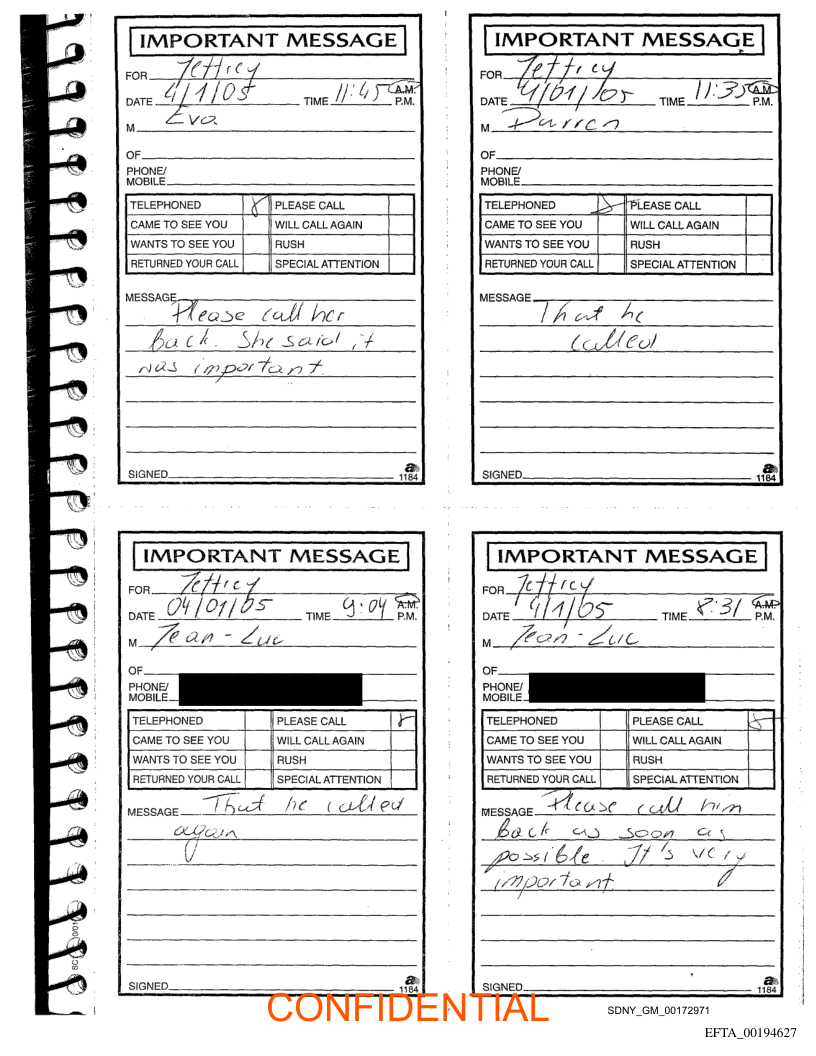 IMPORTANT MESSAGE
FOR Jeffrey
DATE 4/1/05 TIME 11:45 A.M.
P.M.
M Eva
OF
PHONE/
MOBILE
TELEPHONED PLEASE CALL
CAME TO SEE YOU WILL CALL AGAIN
WANTS TO SEE YOU RUSH
RETURNED YOUR CALL SPECIAL ATTENTION
MESSAGE
Please call her
back. She said it
was important.
SIGNED
a
1184
IMPORTANT MESSAGE
FOR Jeffrey
DATE 4/01/05 TIME 11:35 A.M.
P.M.
M Darren
OF
PHONE/
MOBILE
TELEPHONED PLEASE CALL
CAME TO SEE YOU WILL CALL AGAIN
WANTS TO SEE YOU RUSH
RETURNED YOUR CALL SPECIAL ATTENTION
MESSAGE
That he
called
SIGNED
a
1184
IMPORTANT MESSAGE
FOR Jeffrey
DATE 04/01/05 TIME 9:04 A.M.
P.M.
M Jean-Luc
OF
PHONE/
MOBILE
TELEPHONED PLEASE CALL
CAME TO SEE YOU WILL CALL AGAIN
WANTS TO SEE YOU RUSH
RETURNED YOUR CALL SPECIAL ATTENTION
MESSAGE That he called
again
SIGNED
a
1184
IMPORTANT MESSAGE
FOR Jeffrey
DATE 4/1/05 TIME 8:31 A.M.
P.M.
M Jean-Luc
OF
PHONE/
MOBILE
TELEPHONED PLEASE CALL
CAME TO SEE YOU WILL CALL AGAIN
WANTS TO SEE YOU RUSH
RETURNED YOUR CALL SPECIAL ATTENTION
MESSAGE Please call him
back as soon as
possible. It's very
important
SIGNED
a
1184
CONFIDENTIAL
SDNY_GM_00172971
EFTA_00194627